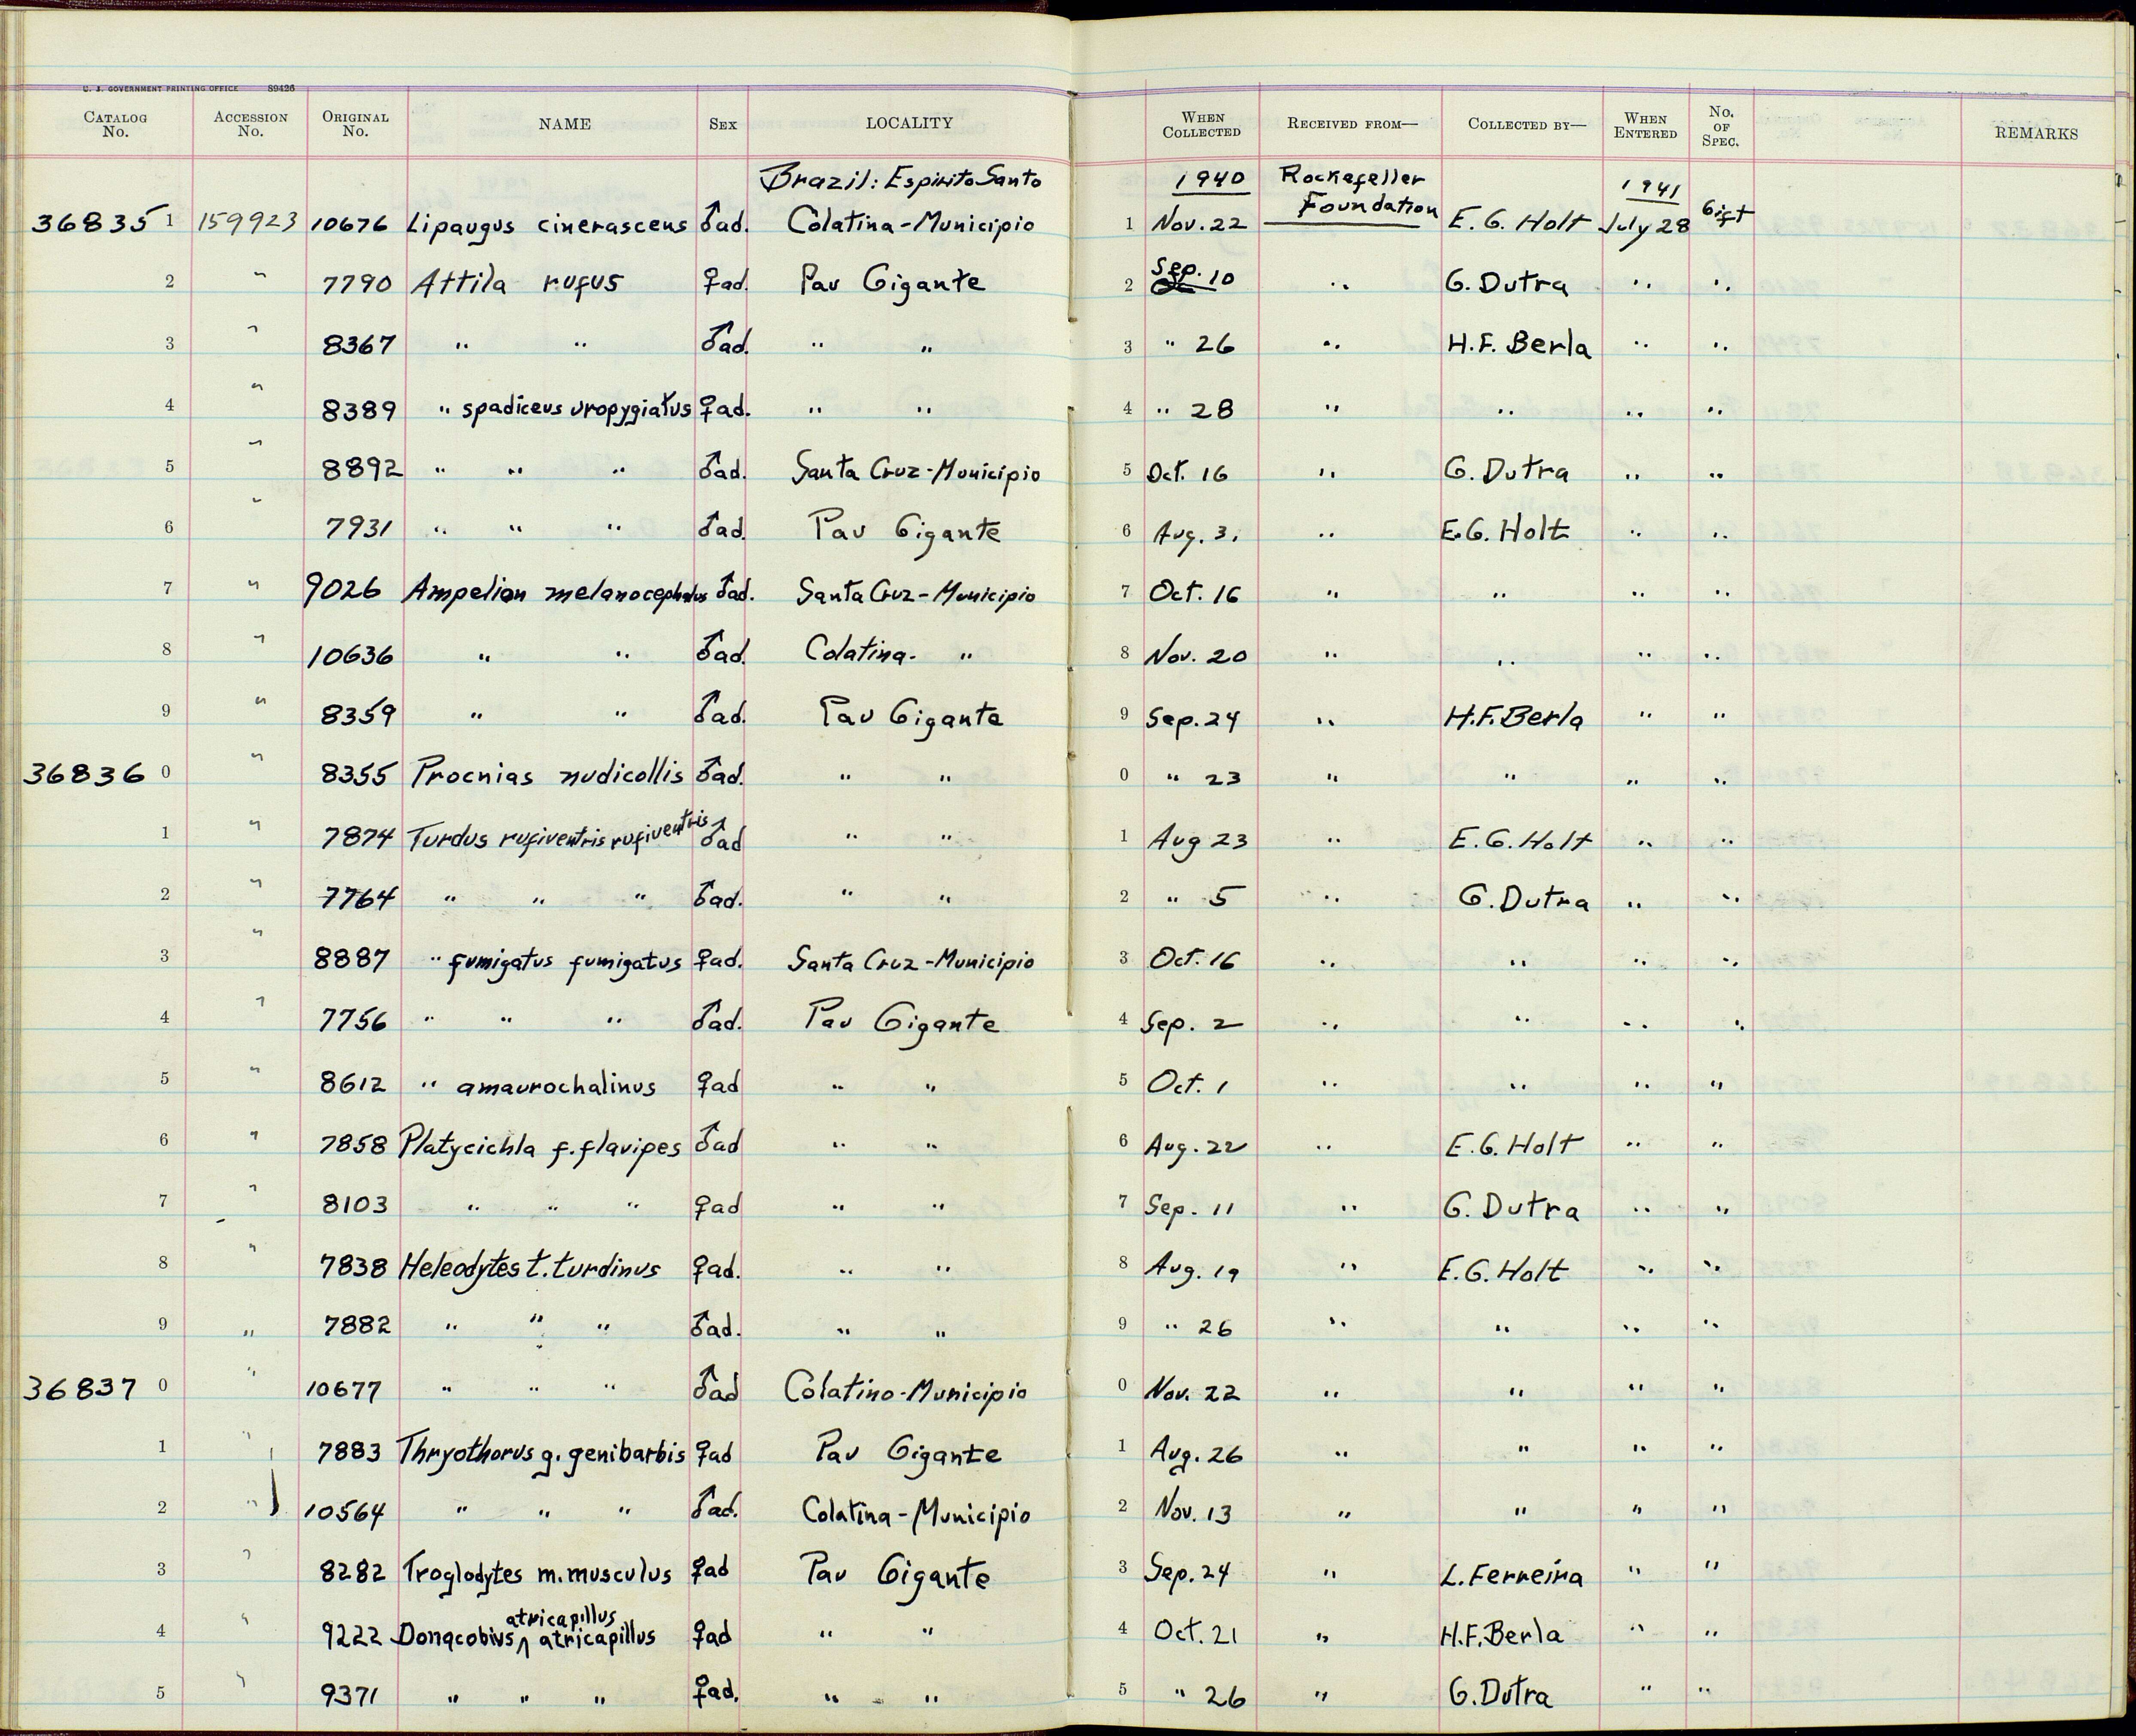 U. S. GOVERNMENT PRINTING OFFICE 89426
CATALOG No. ACCESSION No. ORIGINAL No. NAME SEX LOCALITY WHEN COLLECTED RECEIVED FROM— COLLECTED BY— WHEN ENTERED No. OF SPEC. REMARKS
Brazil: Espirito Santo 1940 Rockefeller Foundation 1941
36835 1 159923 10676 Lipaugus cinerascens ♂ad. Colatina-Municipio 1 Nov. 22 E. G. Holt July 28 Gift
2 " 7790 Attila rufus ♀ad. Pau Gigante 2 Sep. 10 " G. Dutra " "
3 " 8367 " " ♂ad. " " 3 " 26 " H.F. Berla " "
4 " 8389 " spadiceus uropygiatus ♀ad. " " 4 " 28 " " " "
5 " 8892 " " " ♂ad. Santa Cruz-Municipio 5 Oct. 16 " G. Dutra " "
6 " 7931 " " " ♂ad. Pau Gigante 6 Aug. 31 " E.G. Holt " "
7 " 9026 Ampelion melanocephalus ♂ad. Santa Cruz-Municipio 7 Oct. 16 " " " "
8 " 10636 " " ♂ad. Colatina- " 8 Nov. 20 " " " "
9 " 8359 " " ♂ad. Pau Gigante 9 Sep. 24 " H.F. Berla " "
36836 0 " 8355 Procnias nudicollis ♂ad. " " 0 " 23 " " " "
1 " 7874 Turdus rufiventris rufiventris ♂ad " " 1 Aug 23 " E.G. Holt " "
2 " 7764 " " " ♂ad. " " 2 " 5 " G. Dutra " "
3 " 8887 " fumigatus fumigatus ♀ad. Santa Cruz-Municipio 3 Oct. 16 " " " "
4 " 7756 " " " ♂ad. Pau Gigante 4 Sep. 2 " " " "
5 " 8612 " amaurochalinus ♀ad " " 5 Oct. 1 " " " "
6 " 7858 Platycichla f. flavipes ♂ad " " 6 Aug. 22 " E.G. Holt " "
7 " 8103 " " " ♀ad " " 7 Sep. 11 " G. Dutra " "
8 " 7838 Heleodytes t. turdinus ♀ad. " " 8 Aug. 19 " E.G. Holt " "
9 " 7882 " " " ♂ad. " " 9 " 26 " " " "
36837 0 " 10677 " " " ♂ad Colatino-Municipio 0 Nov. 22 " " " "
1 " 7883 Thryothorus g. genibarbis ♀ad Pau Gigante 1 Aug. 26 " " " "
2 " 10564 " " " ♂ad. Colatina-Municipio 2 Nov. 13 " " " "
3 " 8282 Troglodytes m. musculus ♀ad Pau Gigante 3 Sep. 24 " L. Ferreira " "
4 " 9222 Donacobius atricapillus atricapillus ♀ad " " 4 Oct. 21 " H.F. Berla " "
5 " 9371 " " " ♀ad. " " 5 " 26 " G. Dutra " "